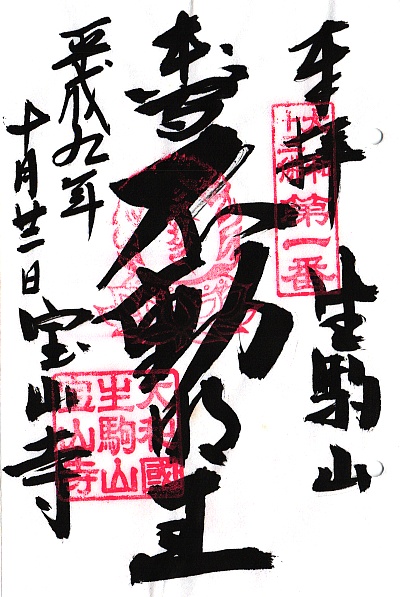 奉拝 生駒山
第一番
本尊
不動明王
大和國
生駒山
宝山寺
平成九年
十月廿二日
宝山寺